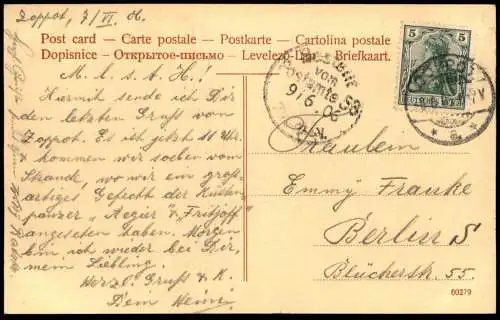 Zoppot, 7/VI. 06.
Post card – Carte postale – Postkarte – Cartolina postale
Dopisnice – Открытое-письмо – Levelező-Lap – Briefkaart.
M. l. s. A. H!
Hiermit sende ich Dir
den letzten Gruß vom
Zoppot. Es ist jetzt 11 Uhr
& kommen wir soeben vom
Strande, wo wir ein groß-
artiges Gefecht der Küsten-
panzer „Aegir" & „Frithjoff"
angesehen haben. Morgen
bin ich wieder bei Dir,
mein Liebling.
Herzl. Gruß & K.
Dein Heini
5
DEUTSCHES REICH
Bestellt
vom
Postamte
9/6. 06
Fräulein
Emmy Franke
Berlin S
Blücherstr. 55.
60279